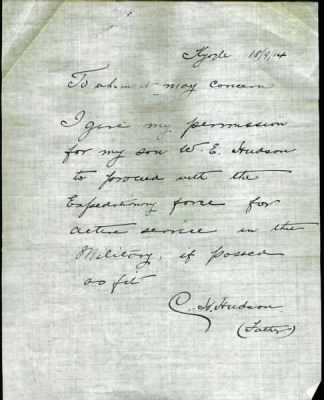 Kyogle 15/9/14
To whom it may concern
I give my permission
for my son W. E. Hudson
to proceed with the
Expeditionary force for
active service in the
Military, if passed
as fit
C. H. Hudson
(Father)